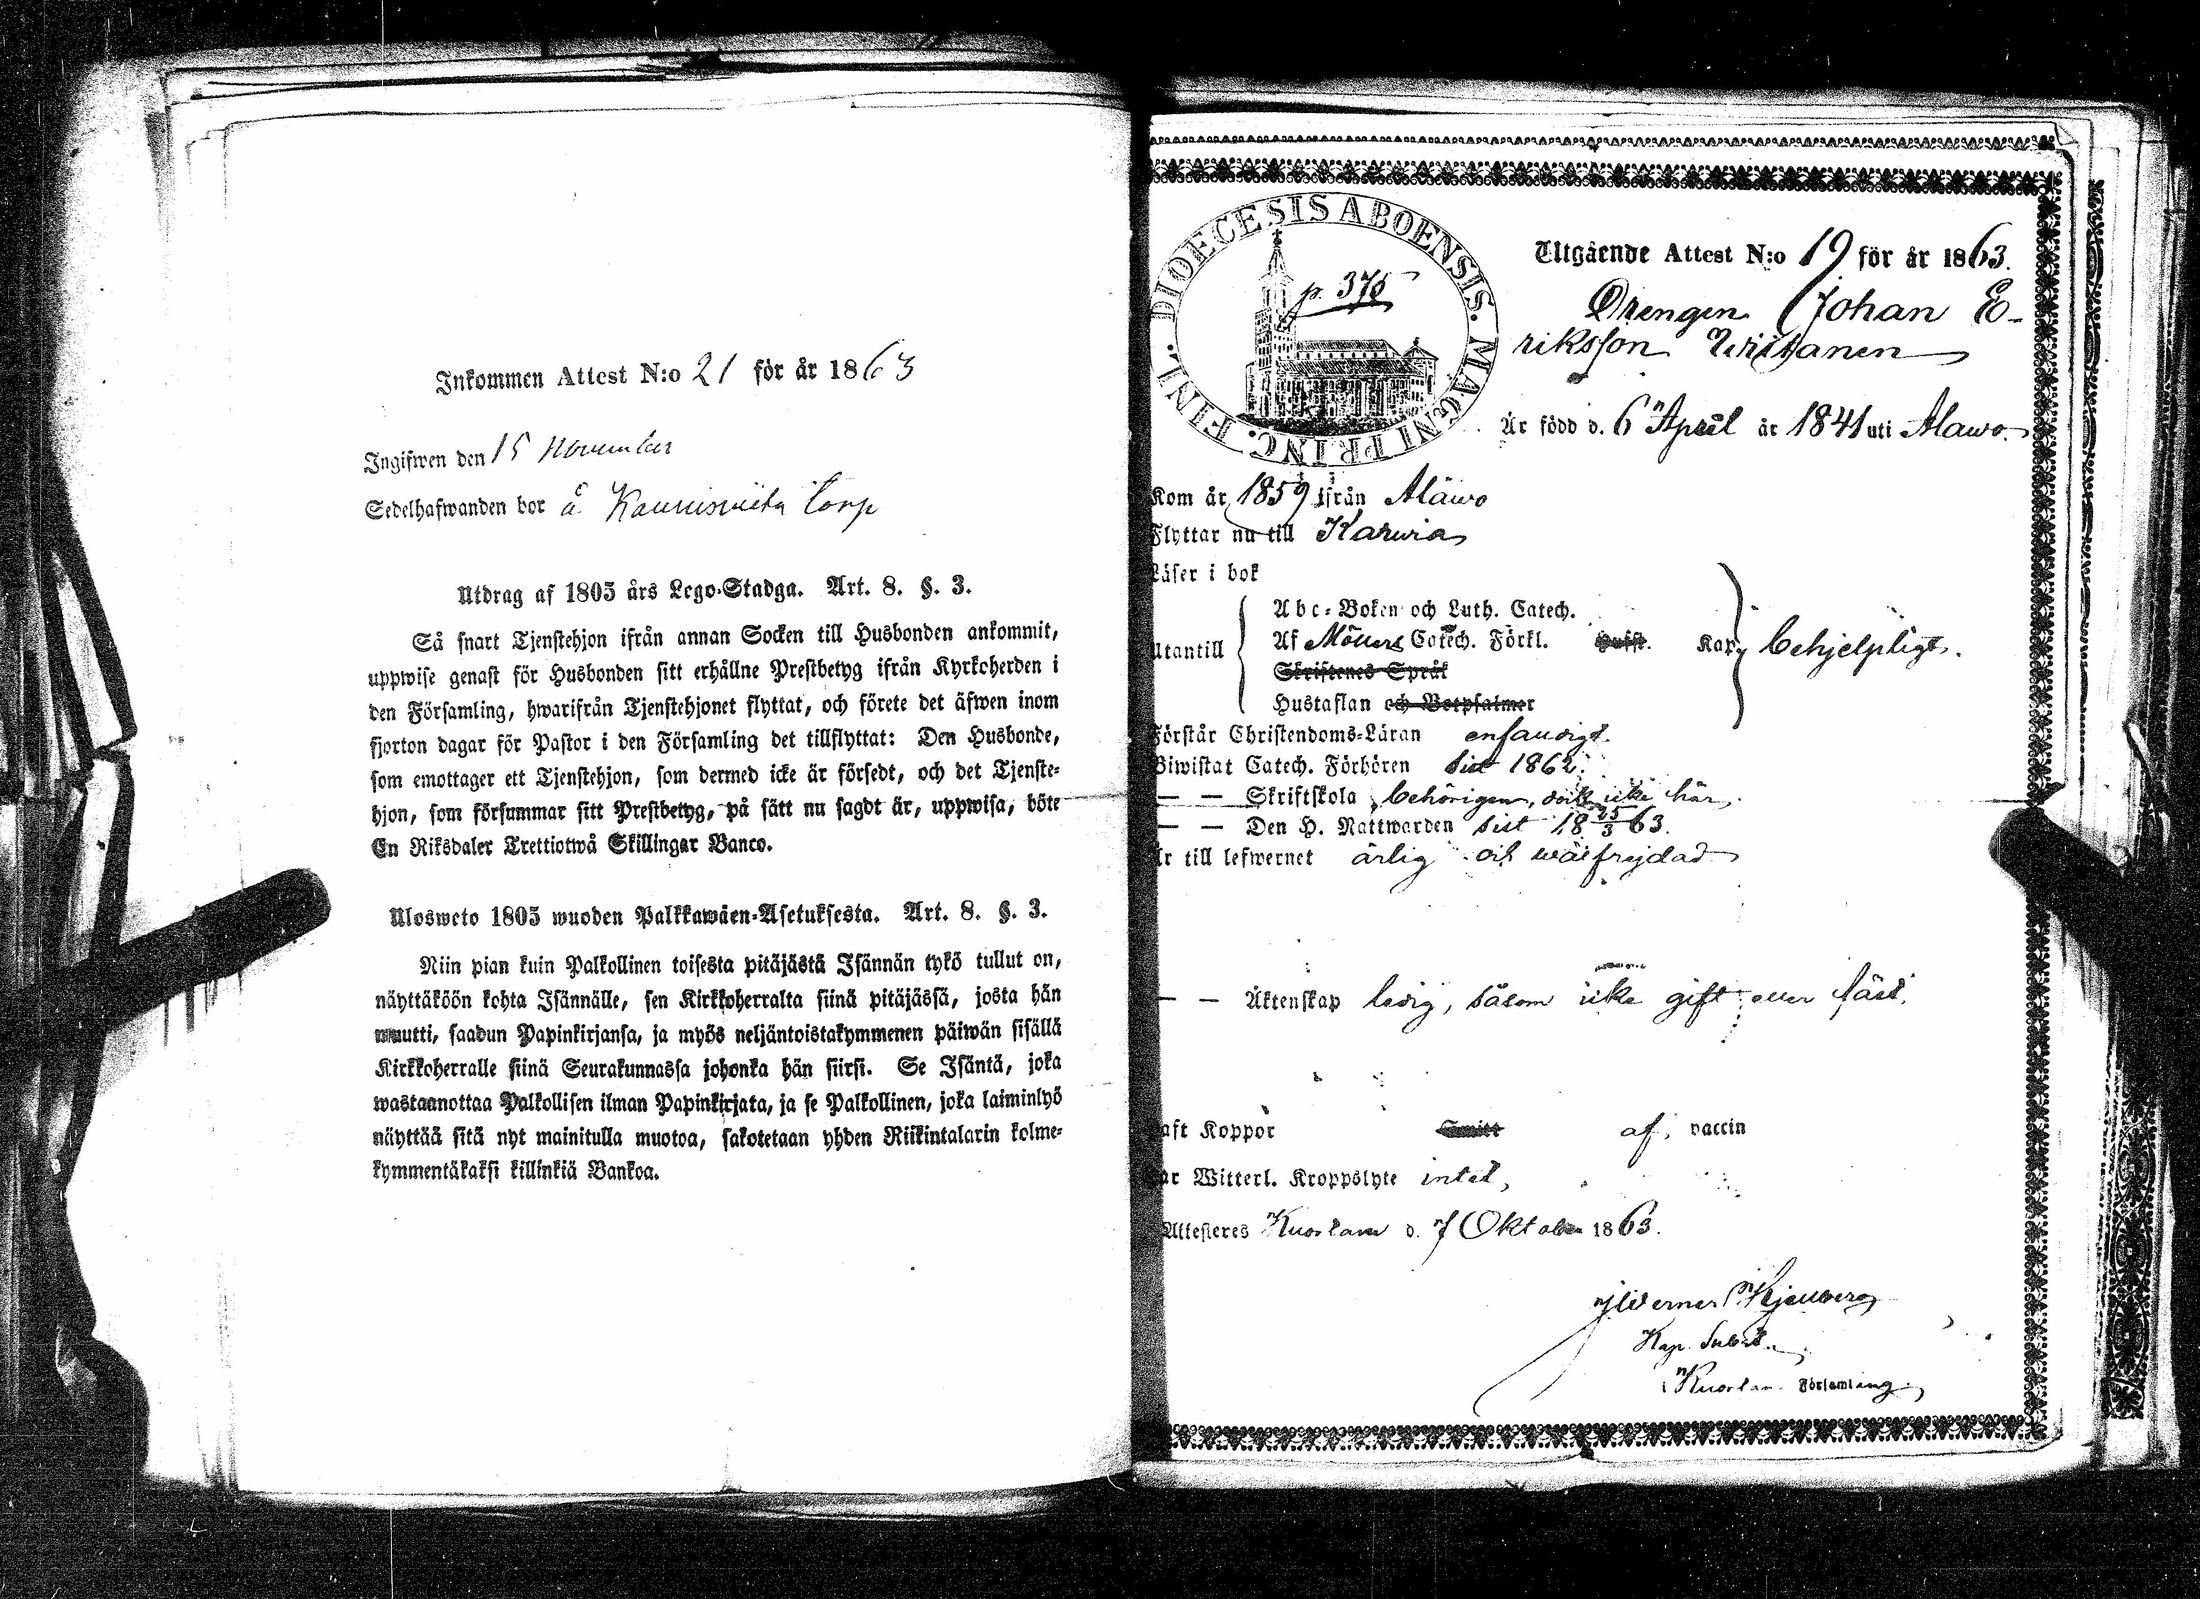 Inkommen Attest N:o 21 för år 1863
Ingifwen den 15 November
Sedelhafwanden bor å torp
Utdrag af 1805 års Lego-Stadga. Art. 8. §. 3.
Så snart Tjenstehjon ifrån annan Socken till Husbonden ankommit,
uppwise genast för Husbonden sitt erhållne Prestbetyg ifrån Kyrkoherden i
den Församling, hwarifrån Tjenstehjonet flyttat, och förete det äfwen inom
fjorton dagar för Pastor i den Församling det tillflyttat: Den Husbonde,
som emottager ett Tjenstehjon, som dermed icke är försedt, och det Tjenste-
hjon, som försummar sitt Prestbetyg, på sätt nu sagdt är, uppwisa, böte
En Riksdaler Trettiotwå Skillingar Banco.
Ulosweto 1805 wuoden Palkkawäen-Asetuksesta. Art. 8. §. 3.
Niin pian kuin Palkollinen toisesta pitäjästä Isännän tykö tullut on,
näyttäköön kohta Isännälle, sen Kirkkoherralta siinä pitäjässä, josta hän
muutti, saadun Papinkirjansa, ja myös neljäntoistakymmenen päiwän sisällä
Kirkkoherralle siinä Seurakunnassa johonka hän siirsi. Se Isäntä, joka
wastaanottaa Palkollisen ilman Papinkirjata, ja se Palkollinen, joka laiminlyö
näyttää sitä nyt mainitulla muotoa, sakotetaan yhden Riikintalarin kolme-
kymmentäkaksi killinkiä Bankoa.
DIOECESIS ABOENSIS. MAGNI PRINC. FINL.
p. 375
Utgående Attest N:o 19 för år 1863.
Drengen Johan E-
riksson
Är född d. 6 April år 1841 uti Alawo.
Kom år 1859 ifrån Alawo
Flyttar nu till Karwia
Läser i bok
Utantill
Abc-Boken och Luth. Catech.
Af Möllers Catech. Förkl. Hufst. Kap. behjelpligt.
Skriftenes Språk
Hustaflan och Botpsalmer
Förstår Christendoms-Läran enfaldigt.
Biwistat Catech. Förhören sist 1862.
— — Skriftskola behörigen, dock icke här.
— — Den H. Nattwarden sist 18 25/3 63.
Är till lefwernet ärlig och wälfrejdad
— — Äktenskap ledig, såsom icke gift eller fäst.
Haft Koppor Smitt af vaccin
Har Witterl. Kroppslyte intet,
Attesteres Kuortane d. 7 Oktober 1863.
Werner
Kap. Subst.
i Kuortane Församling.